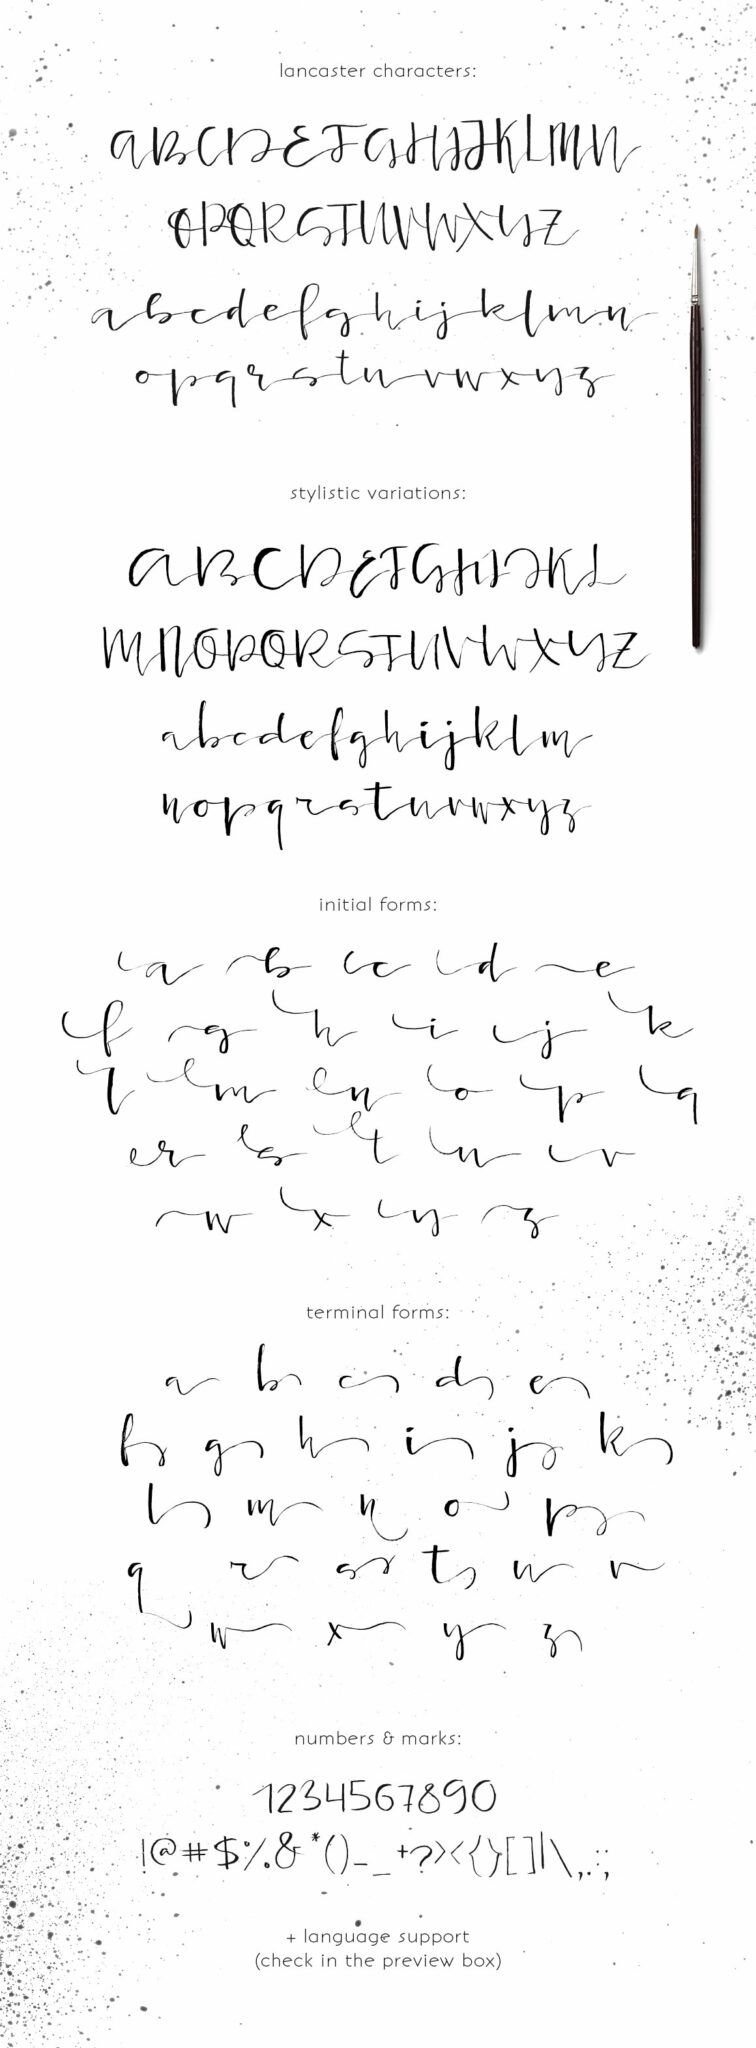 lancaster characters:
ABCDEFGHIJKLMN
OPQRSTUVWXYZ
abcdefghijklmn
opqrstuvwxyz
stylistic variations:
ABCDEFGHIJKL
MNOPQRSTUVWXYZ
abcdefghijklm
nopqrstuvwxyz
initial forms:
a b c d e
f g h i j k
l m n o p q
r s t u v
w x y z
terminal forms:
a b c d e
f g h i j k
l m n o p
q r s t u v
w x y z
numbers & marks:
1234567890
!@#$%.&*()-_+?><{}[]|\,.:;
+ language support
(check in the preview box)